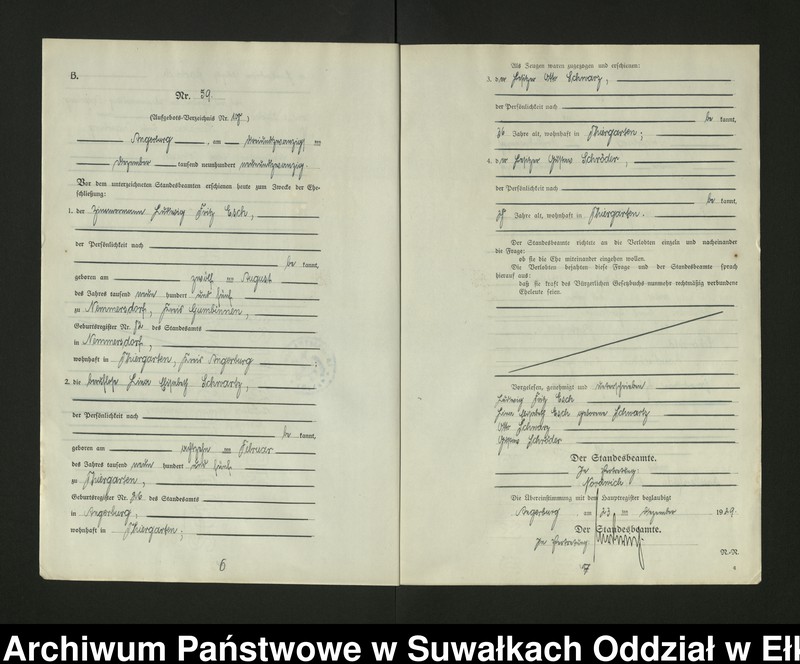 B.
Nr. 59.
(Aufgebots-Verzeichnis Nr.)
Angerburg, am dreiundzwanzigsten
Dezember tausend neunhundert neunundzwanzig.
Vor dem unterzeichneten Standesbeamten erschienen heute zum Zwecke der Ehe-
schließung:
1. der Zimmermann Ludwig Fritz Esch,
der Persönlichkeit nach
be kannt,
geboren am zwölften August
des Jahres tausend neun hundert und fünf
zu Nemmersdorf, Kreis Gumbinnen,
Geburtsregister Nr. des Standesamts
in Nemmersdorf,
wohnhaft in Thiergarten, Kreis Angerburg;
2. die berufslose Lina Elisabeth Schwartz,
der Persönlichkeit nach
be kannt,
geboren am Februar
des Jahres tausend neun hundert und fünf
zu Thiergarten,
Geburtsregister Nr. des Standesamts
in Angerburg,
wohnhaft in Thiergarten;
6
Als Zeugen waren zugezogen und erschienen:
3. der Besitzer Otto Schwarz,
der Persönlichkeit nach
be kannt,
Jahre alt, wohnhaft in Thiergarten;
4. der Besitzer Gustav Schröder,
der Persönlichkeit nach
be kannt,
Jahre alt, wohnhaft in Thiergarten.
Der Standesbeamte richtete an die Verlobten einzeln und nacheinander
die Frage:
ob sie die Ehe miteinander eingehen wollen.
Die Verlobten bejahten diese Frage und der Standesbeamte sprach
hierauf aus:
daß sie kraft des Bürgerlichen Gesetzbuchs nunmehr rechtmäßig verbundene
Eheleute seien.
Vorgelesen, genehmigt und unterschrieben
Ludwig Fritz Esch
Lina Elisabeth Esch geborene Schwartz
Otto Schwarz
Gustav Schröder
Der Standesbeamte.
In Vertretung.
Die Übereinstimmung mit dem Hauptregister beglaubigt
Angerburg, am 23. ten Dezember 1929.
Der Standesbeamte.
In Vertretung.
7
Archiwum Państwowe w Suwałkach Oddział w Ełk